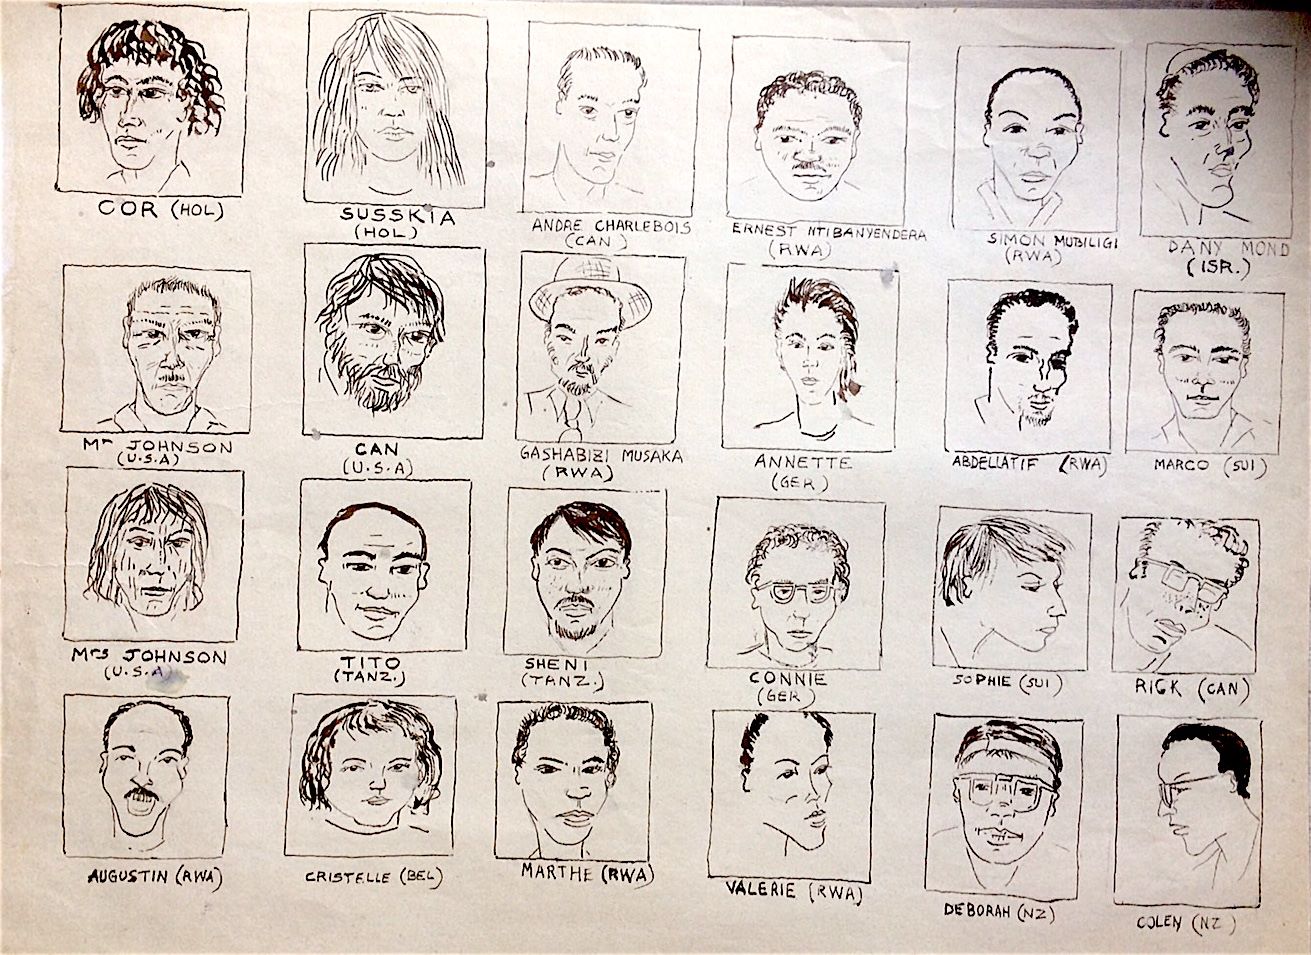 COR (HOL)
SUSSKIA
(HOL)
ANDRE CHARLEBOIS
(CAN)
ERNEST NTIBANYENDERA
(RWA)
SIMON MUBILIGI
(RWA)
DANY MOND
(ISR.)
Mr JOHNSON
(U.S.A)
CAN
(U.S.A)
GASHABIZI MUSAKA
(RWA)
ANNETTE
(GER)
ABDELLATIF (RWA)
MARCO (SUI)
Mrs JOHNSON
(U.S.A)
TITO
(TANZ.)
SHENI
(TANZ.)
CONNIE
(GER)
SOPHIE (SUI)
RICK (CAN)
AUGUSTIN (RWA)
CRISTELLE (BEL)
MARTHE (RWA)
VALERIE (RWA)
DEBORAH (NZ)
COLEN (NZ)